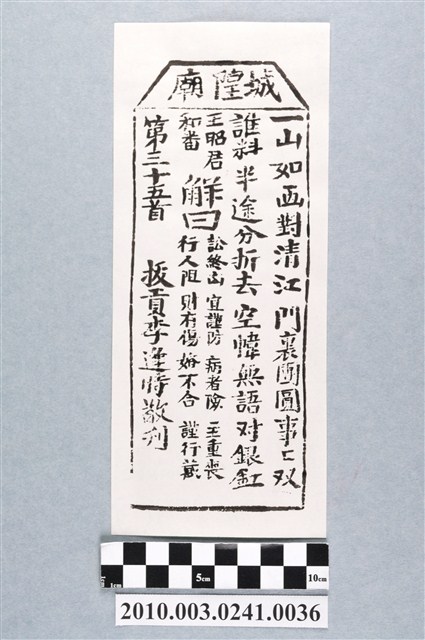 城隍廟
一山如画對清江 門裏團圓事〻双
誰料半途分折去 空幃無語对銀釭
王昭君
和番
解曰
訟終凶 宜謹防 病者險 主重喪
行人阻 則有傷 婚不合 謹行藏
第三十五首 拔貢李逢時敬刋
5cm
10cm
2010.003.0241.0036